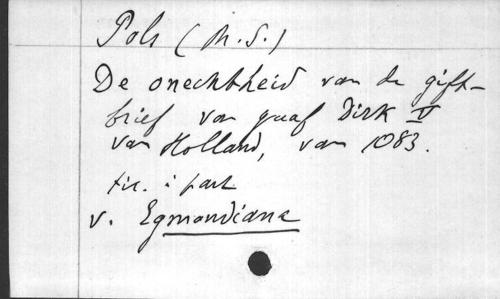 Pols (M.S.)
De onechtheid van de gift-
brief van graaf Dirk V
van Holland, van 1083.
in: part
v. Egmondiana